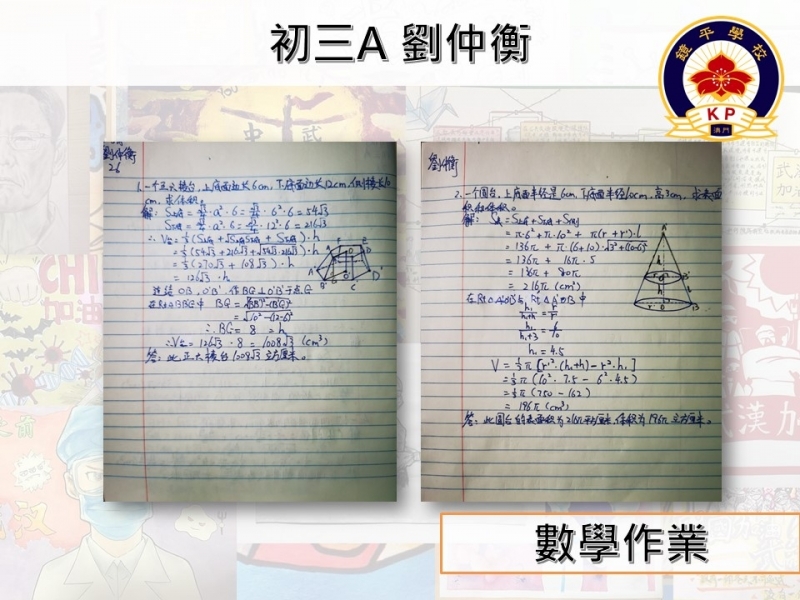 初三A 劉仲衡
鏡平學校
KP
澳門
劉仲衡
26
1. 一个正六棱台,上底面边长6cm,下底面边长12cm,侧棱长10
cm,求体积。
解:S上底 = √3/4 · a² · 6 = √3/4 · 6² · 6 = 54√3
S下底 = √3/4 · a² · 6 = √3/4 · 12² · 6 = 216√3
∴ V = 1/3 (S上底 + √S上底S下底 + S下底) · h
= 1/3 (54√3 + 216√3 + √54√3·216√3) · h
= 1/3 (270√3 + 108√3) · h
= 126√3 · h
连结OB, O'B', 作BG⊥O'B'于点G
在Rt△BB'G中 BG = √(BB')²-(B'G)²
= √10²-(12-6)²
∴ BG = 8 = h
∴ V = 126√3 · 8 = 1008√3 (cm³)
答:此正六棱台1008√3 立方厘米。
劉仲衡
2. 一个圆台,上底面半径是6cm,下底面半径10cm,高3cm,求表面
积和体积。
解:S表 = S上底 + S下底 + S侧
= π·6² + π·10² + π(r+r')·l
= 136π + π·(6+10)·√3²+(10-6)²
= 136π + 16π·5
= 136π + 80π
= 216π (cm²)
h₁/h₁+h = r/r'
h₁/h₁+3 = 6/10
h₁ = 4.5
V = 1/3 π [r'²·(h₁+h) - r²·h₁]
= 1/3 π (10²·7.5 - 6²·4.5)
= 1/3 π (750 - 162)
= 196π (cm³)
答:此圆台的表面积为216π平方厘米,体积为196π立方厘米。
數學作業